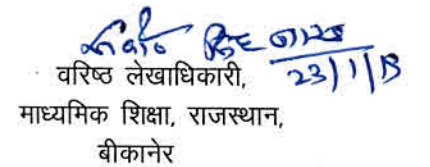 23/1/13
वरिष्ठ लेखाधिकारी,
माध्यमिक शिक्षा, राजस्थान,
बीकानेर